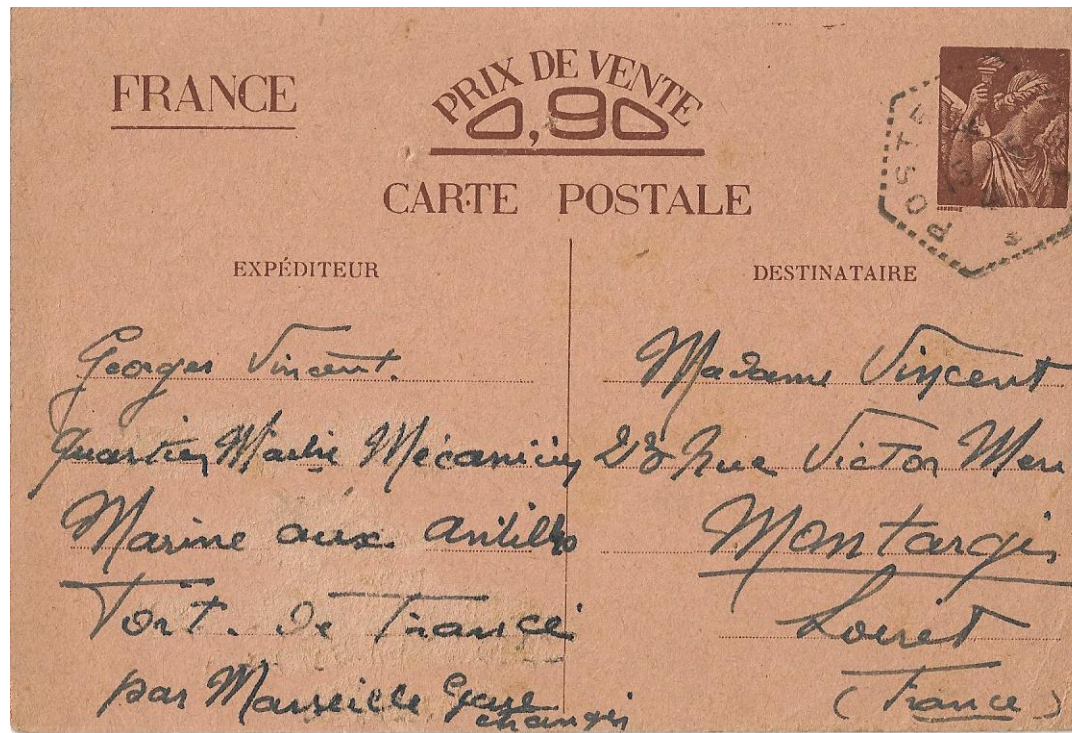 FRANCE
PRIX DE VENTE
0,90
CARTE POSTALE
POSTE
EXPÉDITEUR
DESTINATAIRE
Georges Vincent.
Quartier Maître Mécanicien
Marine aux Antilles
Fort. de France
par Marseille Gare
étranger
Madame Vincent
23 Rue Victor
Montargis
Loiret
(France)